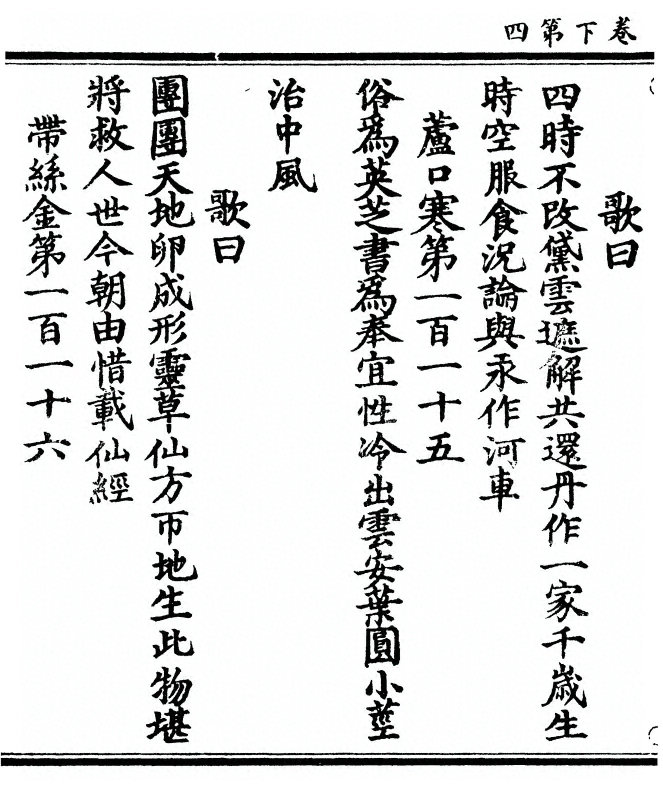 卷下第四
歌曰
四時不改黛雲遮解共還丹作一家千歲生
時空服食況論與汞作河車
蘆口寒第一百一十五
俗爲英芝書爲奉宜性冷出雲安葉圓小莖
治中風
歌曰
團團天地卵成形靈草仙方帀地生此物堪
將救人世今朝由惜載仙經
帶絲金第一百一十六